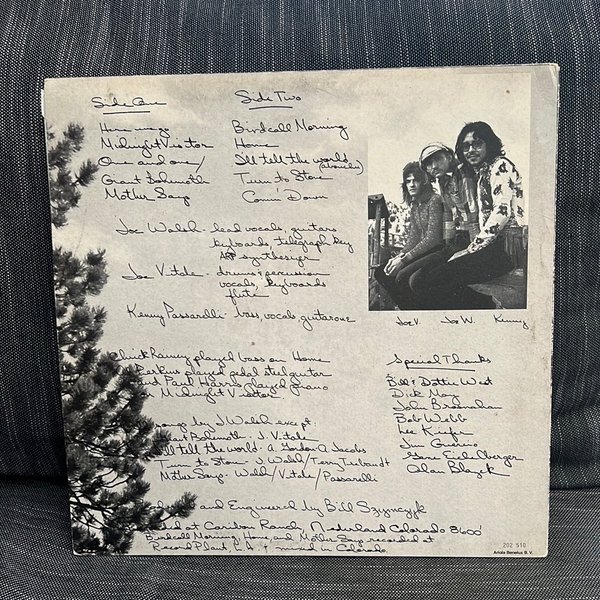 Side One
Here we go
Midnight Visitor
One and one/
Giant Bohemoth
Mother Says
Side Two
Birdcall Morning
Home
I'll tell the world
(about you)
Turn to Stone
Comin' Down
Joe Walsh - lead vocals, guitars
keyboards, telegraph key
ARP synthesizer
Joe Vitale - drums + percussion
vocals, keyboards
flute
Kenny Passarelli - bass, vocals, guitarone
Joe V. Joe W. Kenny
Chuck Rainey played bass on Home
Perkins played pedal steel guitar
and Paul Harris played piano
on Midnight Visitor
Special Thanks
Bill & Dottie West
Dick May
John Brosnahan
Bob Webb
Lee Kiefer
Jim Guercio
Gene Eichelberger
Alan Blazek
songs by J Walsh except:
Giant Bohemoth - J. Vitale
I'll tell the world - A. Gordon A Jacobs
Turn to Stone - J. Walsh/Terry Trebandt
Mother Says - Walsh/Vitale/Passarelli
and Engineered by Bill Szymczyk
at Caribou Ranch, Nederland Colorado 8600'
Birdcall Morning, Home and Mother Says recorded at
Record Plant L.A. + mixed in Colorado
202 510
Ariola Benelux B.V.